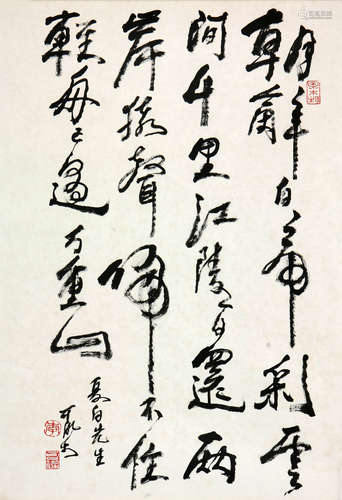 朝辭白帝彩雲
間千里江陵一日還兩
岸猿聲啼不住
輕舟已過万重山
夏白先生
可染